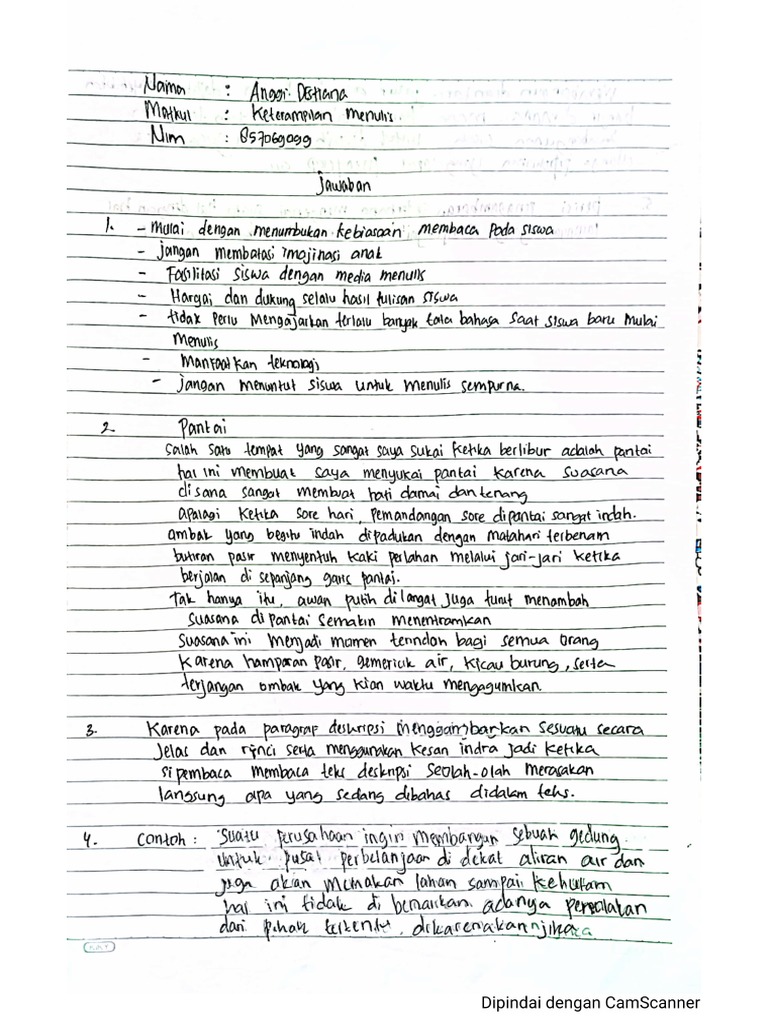 Nama : Anggi Destiana
Matkul : Keterampilan Menulis.
Nim : 857069099
Jawaban
1. - Mulai dengan menumbukan kebiasaan membaca pada siswa
- jangan membatasi imajinasi anak
- Fasilitasi siswa dengan media menulis
- Hargai dan dukung selalu hasil tulisan siswa
- tidak perlu mengajarkan terlalu banyak tata bahasa saat siswa baru mulai
Menulis
- Manfaatkan teknologi
- jangan menuntut siswa untuk menulis sempurna.
2. Pantai
Salah satu tempat yang sangat saya sukai ketika berlibur adalah pantai
hal ini membuat saya menyukai pantai karena suasana
disana sangat membuat hati damai dan tenang
apalagi ketika sore hari, pemandangan sore dipantai sangat indah.
ambak yang begitu indah dipadukan dengan matahari terbenam
butiran pasir menyentuh kaki perlahan melalui jari-jari ketika
berjalan di sepanjang garis pantai.
Tak hanya itu, awan putih dilangat juga turut menambah
suasana di pantai semakin menentramkan
suasana ini menjadi momen terindah bagi semua orang
karena hamparan pasir, gemericik air, kicau burung, serta
terjangan ombak yang kian waktu mengagumkan.
3. Karena pada paragrap deskripsi menggambarkan sesuatu secara
jelas dan rinci serta menggunakan kesan indra jadi ketika
sipembaca membaca teks deskripsi seolah-olah merasakan
langsung apa yang sedang dibahas didalam teks.
4. Contoh : Suatu perusahaan ingin membangun sebuah gedung
untuk pusat perbelanjaan di dekat aliran air dan
juga akan memakan lahan sampai kehutan
hal ini tidak di benarkan adanya penolakan
dari pihak terkentu, dikarenakan
KKY
Dipindai dengan CamScanner